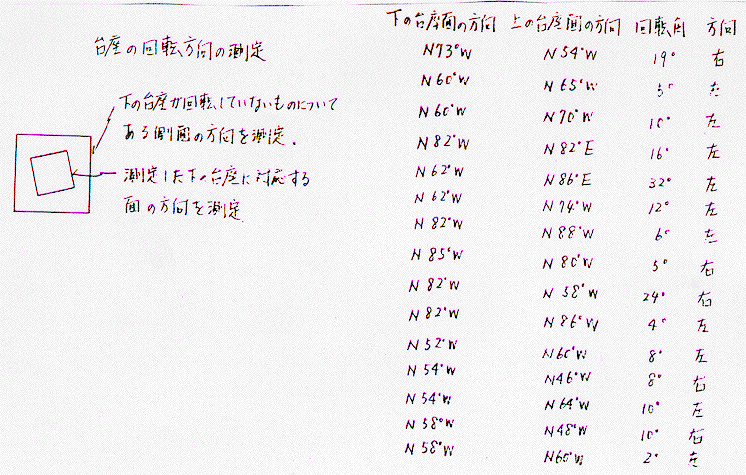 台座の回転方向の測定
下の台座が回転していないものについて
ある側面の方向を測定.
測定した下の台座に対応する
面の方向を測定
下の台座面の方向 上の台座面の方向 回転角 方向
N73°W N54°W 19° 右
N60°W N65°W 5° 左
N60°W N70°W 10° 左
N82°W N82°E 16° 左
N62°W N86°E 32° 左
N62°W N74°W 12° 左
N82°W N88°W 6° 左
N85°W N80°W 5° 右
N82°W N58°W 24° 右
N82°W N86°W 4° 左
N52°W N60°W 8° 左
N54°W N46°W 8° 右
N54°W N64°W 10° 左
N58°W N48°W 10° 右
N58°W N60°W 2° 左